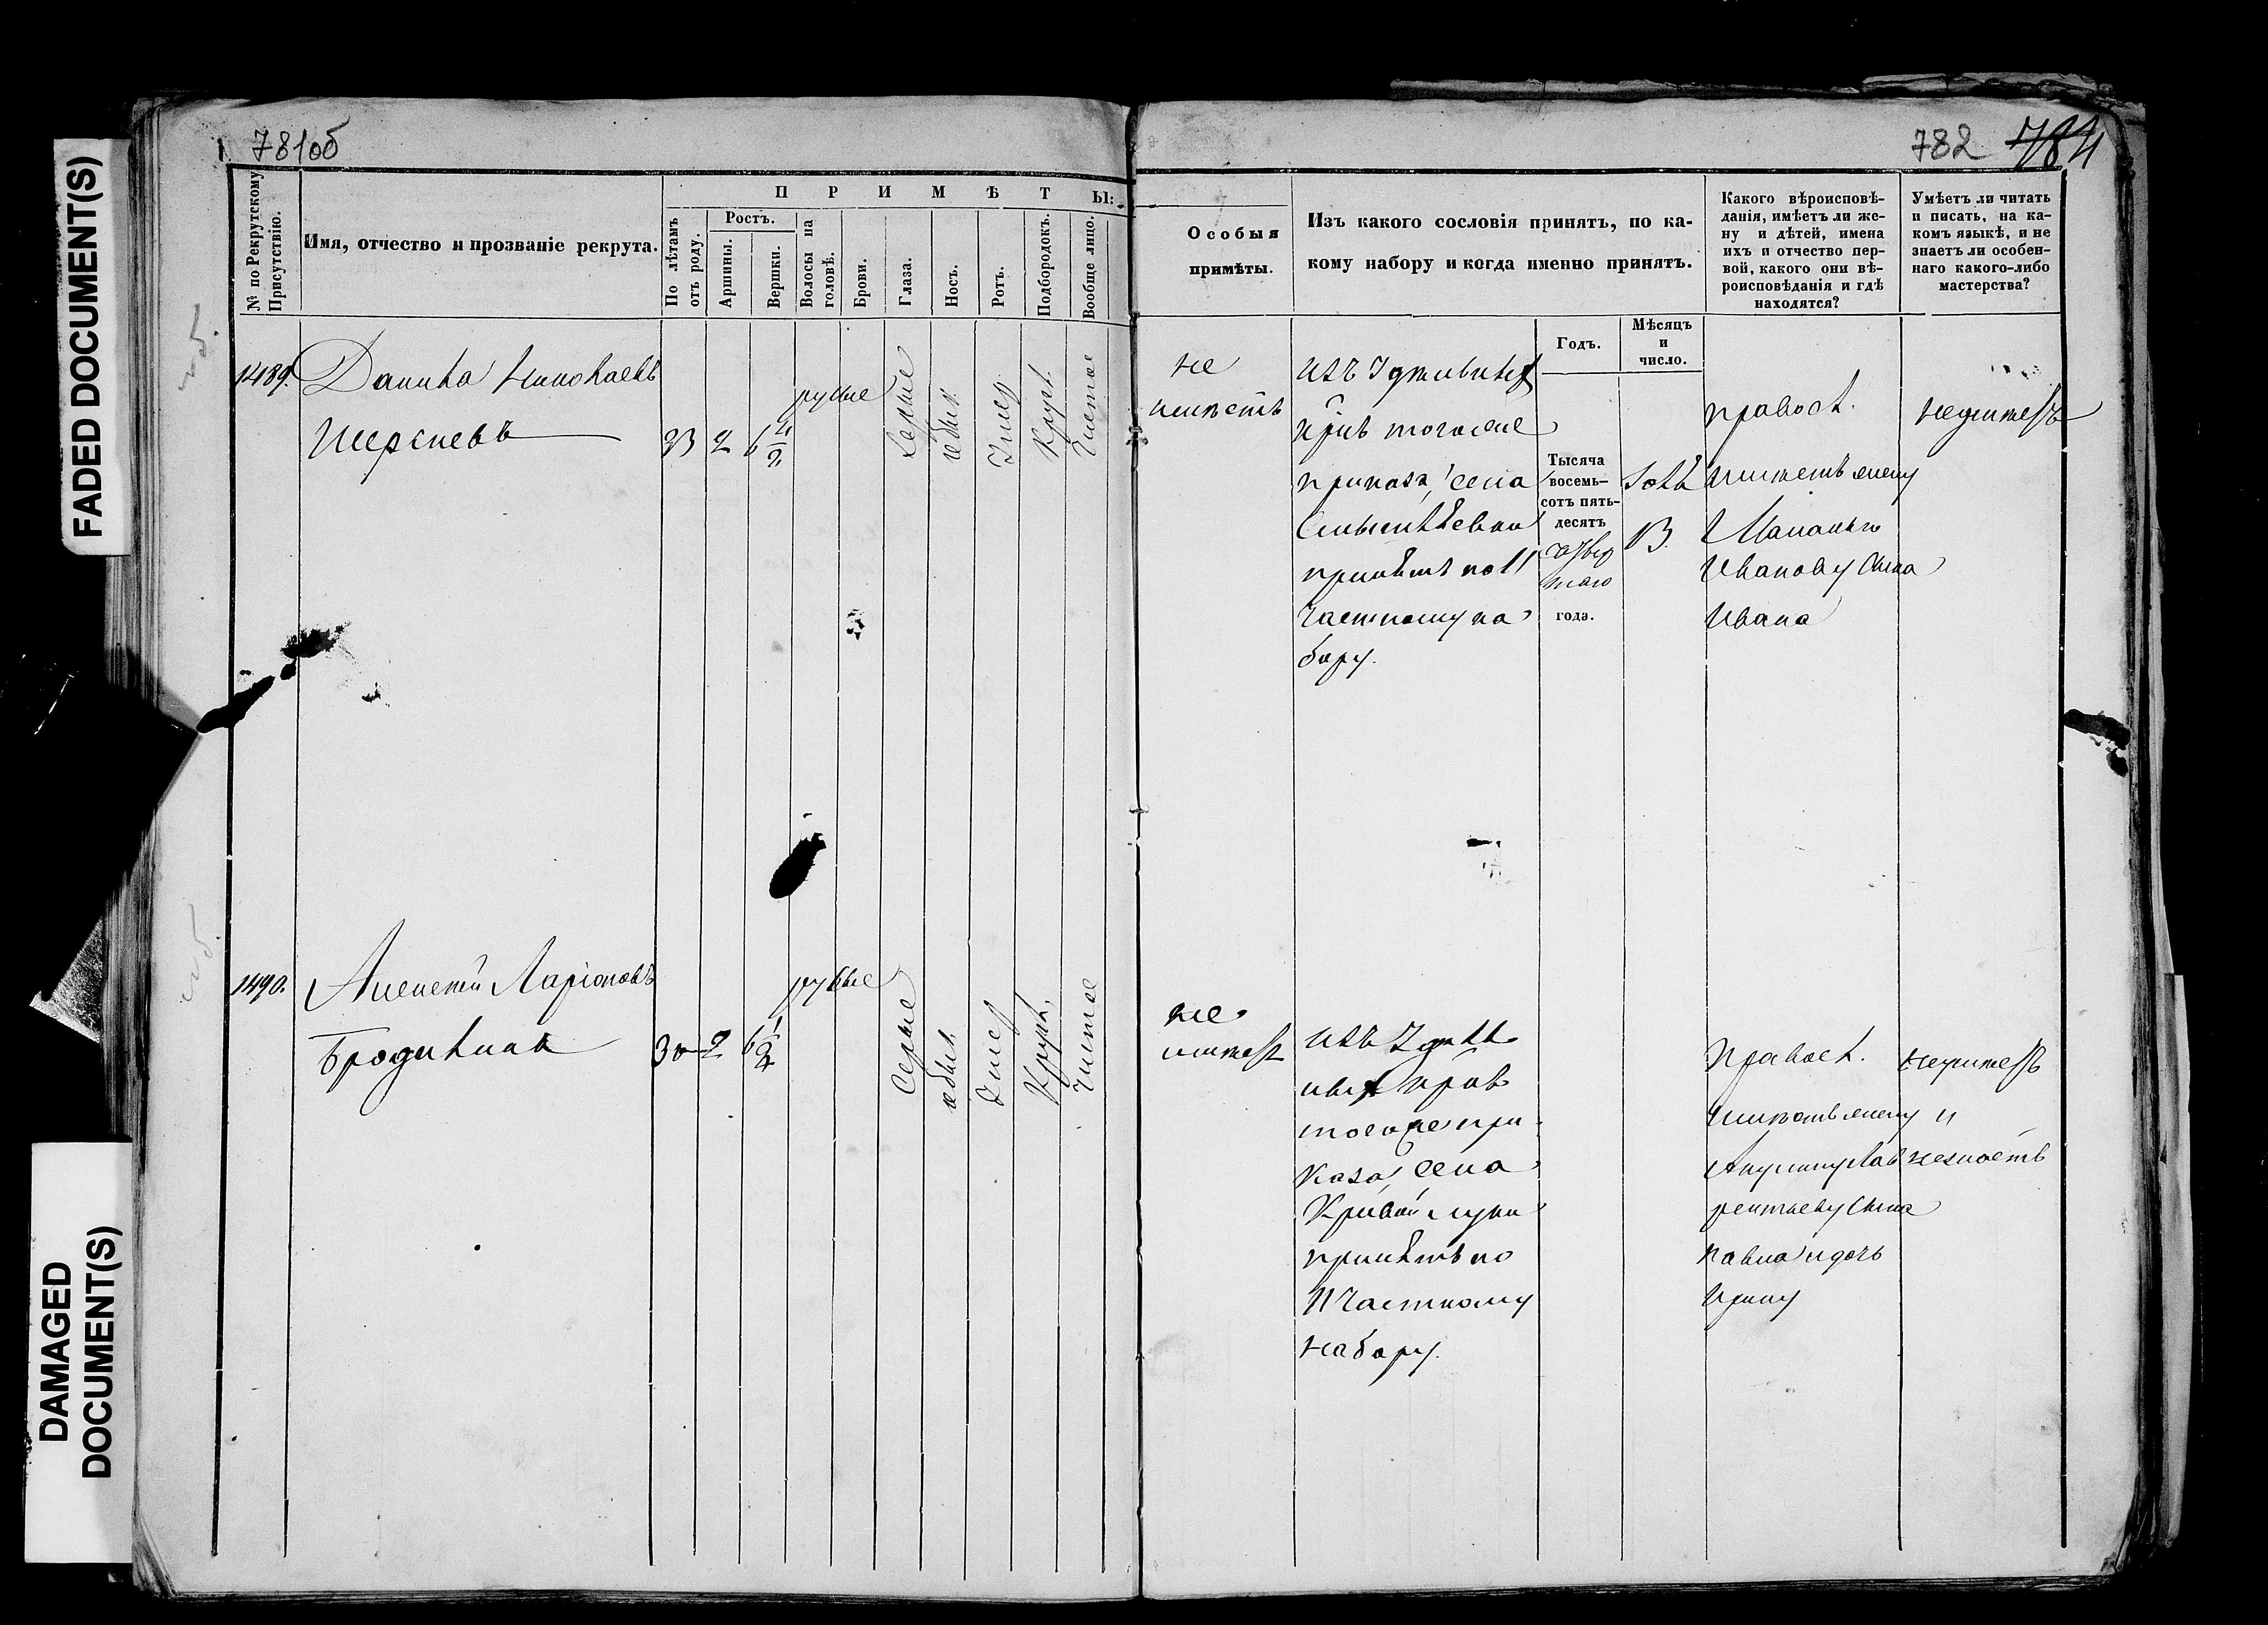 FADED DOCUMENT(S)
DAMAGED
DOCUMENT(S)
781об
782 784
№ по Рекрутскому
Присутствію.
Имя, отчество и прозваніе рекрута.
ПРИМѢТЫ:
По лѣтамъ
отъ роду.
Ростъ.
Аршины.
Вершки.
Волосы на
головѣ.
Брови.
Глаза.
Носъ.
Ротъ.
Подбородокъ.
Вообще лицо.
Особыя
примѣты.
Изъ какого сословія принятъ, по ка-
кому набору и когда именно принятъ.
Годъ.
Мѣсяцъ
и
число.
Какого вѣроисповѣ-
данія, имѣетъ ли же-
ну и дѣтей, имена
ихъ и отчество пер-
вой, какого они вѣ-
роисповѣданія и гдѣ
находятся?
Умѣетъ ли читать
и писать, на ка-
комъ языкѣ, и не
знаетъ ли особен-
наго какого-либо
мастерства?
1489.
Данила Николаевъ
23 2 6
русые
Серые
Круг.
Чистое
не
имѣетъ
тогоже
приказа, села
принятъ по 11
частному на
бору.
Тысяча
восемь-
сотъ пять-
десятъ
четвер
таго
года.
13.
правос.
имѣетъ жену
Маланью
Иванову сына
Ивана
неумѣетъ
1490.
Алексей Ларіоновъ
30 2 6 1/2
русые
Серые
Кругл.
Чистое
не
имѣетъ
изъ
тогоже при
каза, села
Кривой луки
принятъ по
11 Частному
набору.
Правос.
имѣетъ жену
Акулину Лав
рентьеву сына
Павла и дочь
Ирину
неумѣетъ
и
незнаетъ